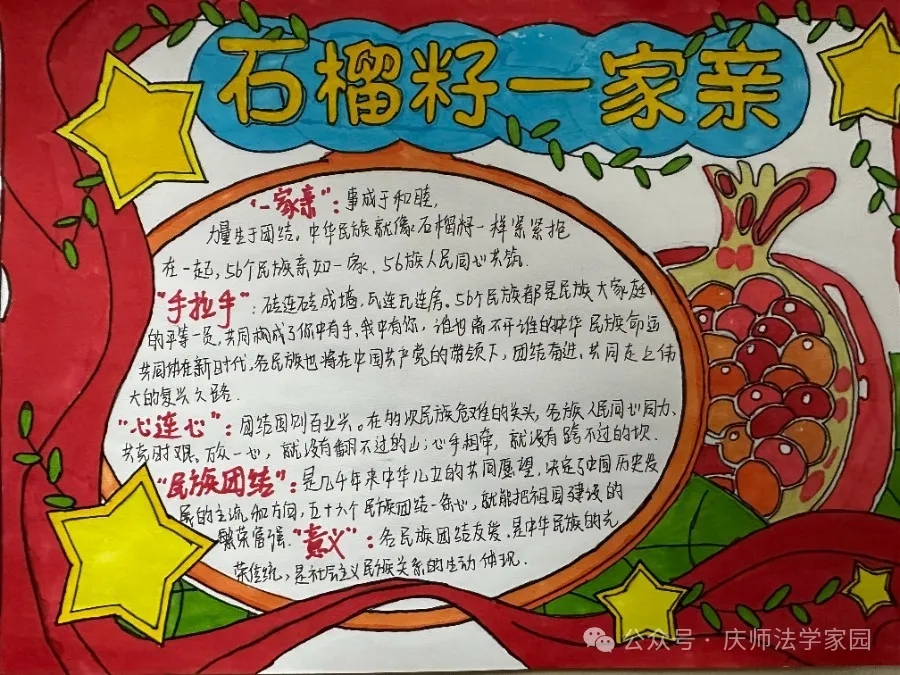 石榴籽一家亲
“一家亲”：事成于和睦，
力量生于团结。中华民族就像石榴籽一样紧紧抱
在一起，56个民族亲如一家，56族人民同心共筑.
“手拉手”：砖连砖成墙，瓦连瓦连房。56个民族都是民族大家庭
的平等一员，共同构成了你中有手、我中有你，谁也离不开谁的中华民族命运
共同体在新时代，各民族也将在中国共产党的带领下，团结奋进、共同走上伟
大的复兴之路.
“心连心”：团结国则百业兴。在多次民族危难的关头，各族人民同心同力、
共克时艰、万众一心，就没有翻不过的山；心手相牵，就没有跨不过的坎.
“民族团结”：是几千年来中华儿立的共同愿望，决定了中国历史发
展的主流和方向，五十六个民族团结一条心，就能把祖国建设的
繁荣富强.“意义”：各民族团结友爱，是中华民族的光
荣传统，是社会主义民族关系的生动体现.
公众号·庆师法学家园